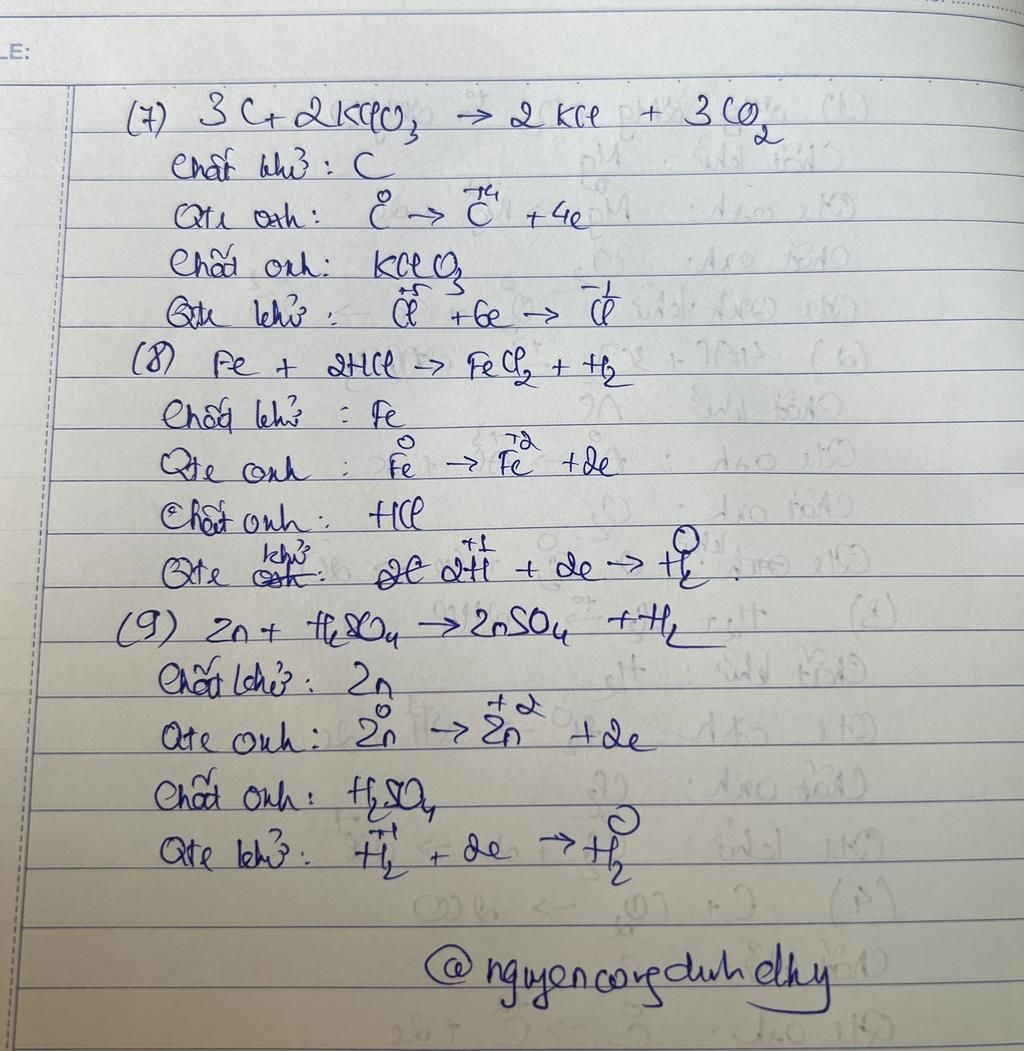 LE:
(7) 3C + 2KClO₃ → 2KCl + 3CO₂
Chất khử: C
Qte oxh: C⁰ → C⁺⁴ + 4e
Chất oxh: KClO₃
Qte khử: Cl⁺⁵ + 6e → Cl⁻¹
(8) Fe + 2HCl → FeCl₂ + H₂
Chất khử: Fe
Qte oxh: Fe⁰ → Fe⁺² + 2e
Chất oxh: HCl
Qte khử: 2H⁺¹ + 2e → H₂⁰
(9) Zn + H₂SO₄ → ZnSO₄ + H₂
Chất khử: Zn
Qte oxh: Zn⁰ → Zn⁺² + 2e
Chất oxh: H₂SO₄
Qte khử: H₂⁺¹ + 2e → H₂⁰